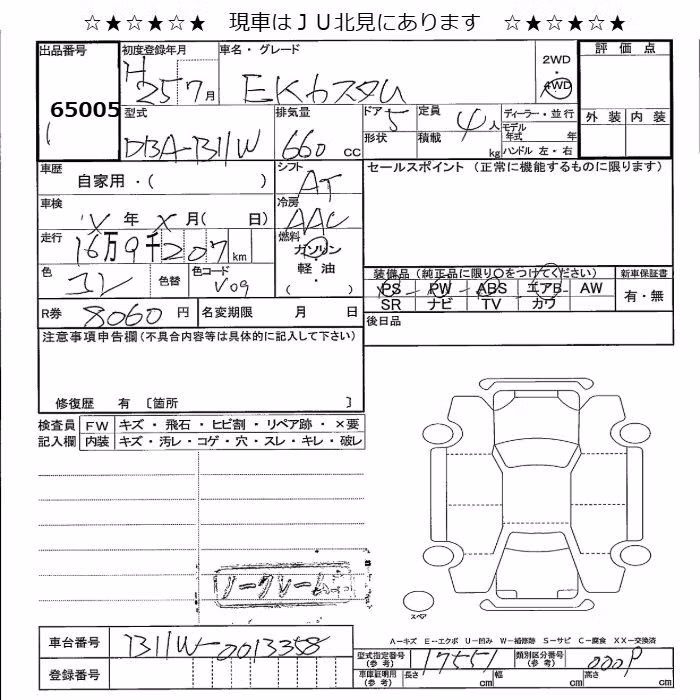 ☆★☆★☆★ 現車はJU北見にあります ☆★☆★☆★
出品番号 初度登録年月 車名・グレード 2WD 評価点
65005 H25 7月 EKカスタム 4WD
型式 排気量 ドア 5 定員 4人 ディーラー・並行 外装 内装
DBA-B11W 660cc 形状 積載 kg モデル年式 年
ハンドル 左・右
車歴 自家用・( ) シフト AT セールスポイント (正常に機能するものに限ります)
車検 X年X月( 日) 冷房 AAC
走行 16万9千207km 燃料 ガソリン・軽油( )
色 コン 色替 色コード V09
装備品 (純正品に限り○をつけてください) 新車保証書
PS PW ABS エアB AW 有・無
SR ナビ TV カワ
R券 8060円 名変期限 月 日 後日品
注意事項申告欄(不具合内容等は具体的に記入して下さい)
修復歴 有 〔箇所 〕
検査員記入欄 FW キズ・飛石・ヒビ割・リペア跡・×要
内装 キズ・汚レ・コゲ・穴・スレ・キレ・破レ
ノークレーム
スペア
A-キズ E-エクボ U-凹み W-補修跡 S-サビ C-腐食 XX-交換済
車台番号 B11W-0013358
型式指定番号(参考) 17551 類別区分番号(参考)
登録番号 車庫証明用(参考) 長さ cm 幅 cm 高さ cm